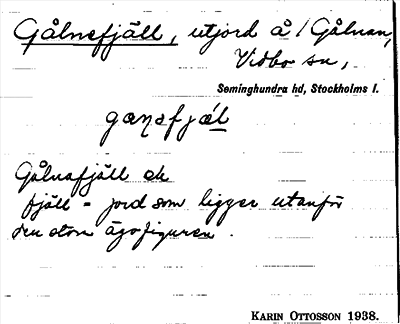 Gålnefjäll, utjord å/Gålnan,
Vidbo sn,
Seminghundra hd, Stockholms l.
Gålnafjäll ek
fjäll = jord som ligger utanför
den stora ägofiguren.
KARIN OTTOSSON 1938.